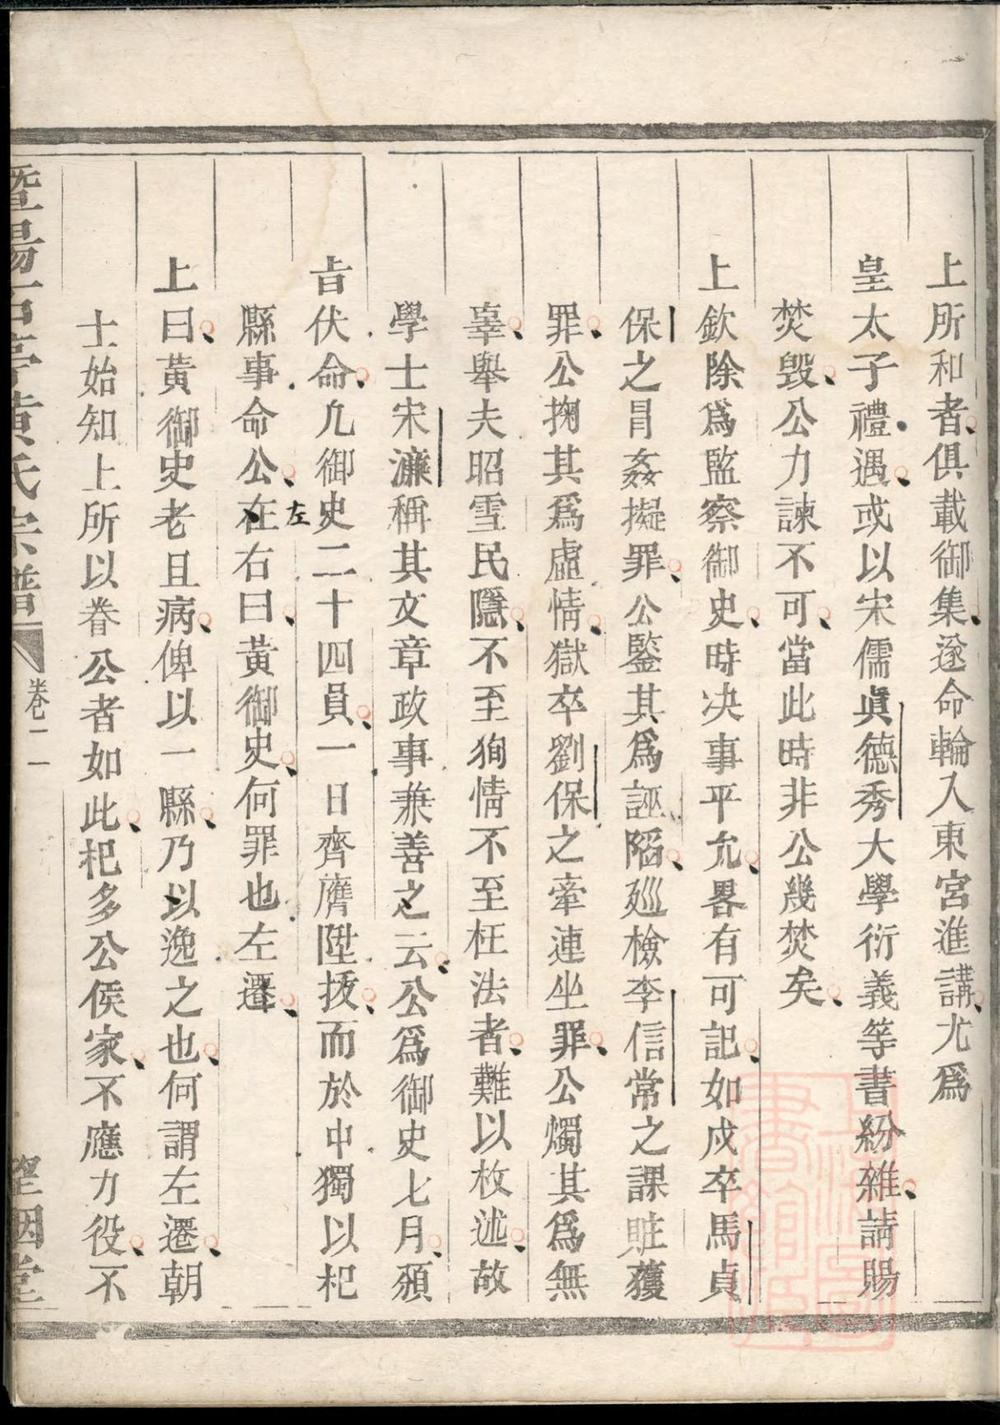 上所和者俱載御集遂命輪入東宮進講尤爲
皇太子禮遇或以宋儒眞德秀大學衍義等書紛雜請賜
焚毀公力諫不可當此時非公幾焚矣
上欽除爲監察御史時决事平允畧有可記如戍卒馬貞
保之冐姦擬罪公鑒其爲誣陷廵檢李信常之課賍獲
罪公掬其爲虛情獄卒劉保之牽連坐罪公燭其爲無
辜舉夫昭雪民隱不至狥情不至枉法者難以枚述故
學士宋濂稱其文章政事兼善之云公爲御史七月頒
㫖伏命九御史二十四員一日齊膺陞拔而於中獨以杞
縣事命公左在右曰黃御史何罪也左遷
上曰黃御史老且病俾以一縣乃以逸之也何謂左遷朝
士始知上所以眷公者如此杞多公侯家不應力役不
暨陽古亭黃氏宗譜 卷二 望烟堂
上海圖書館藏